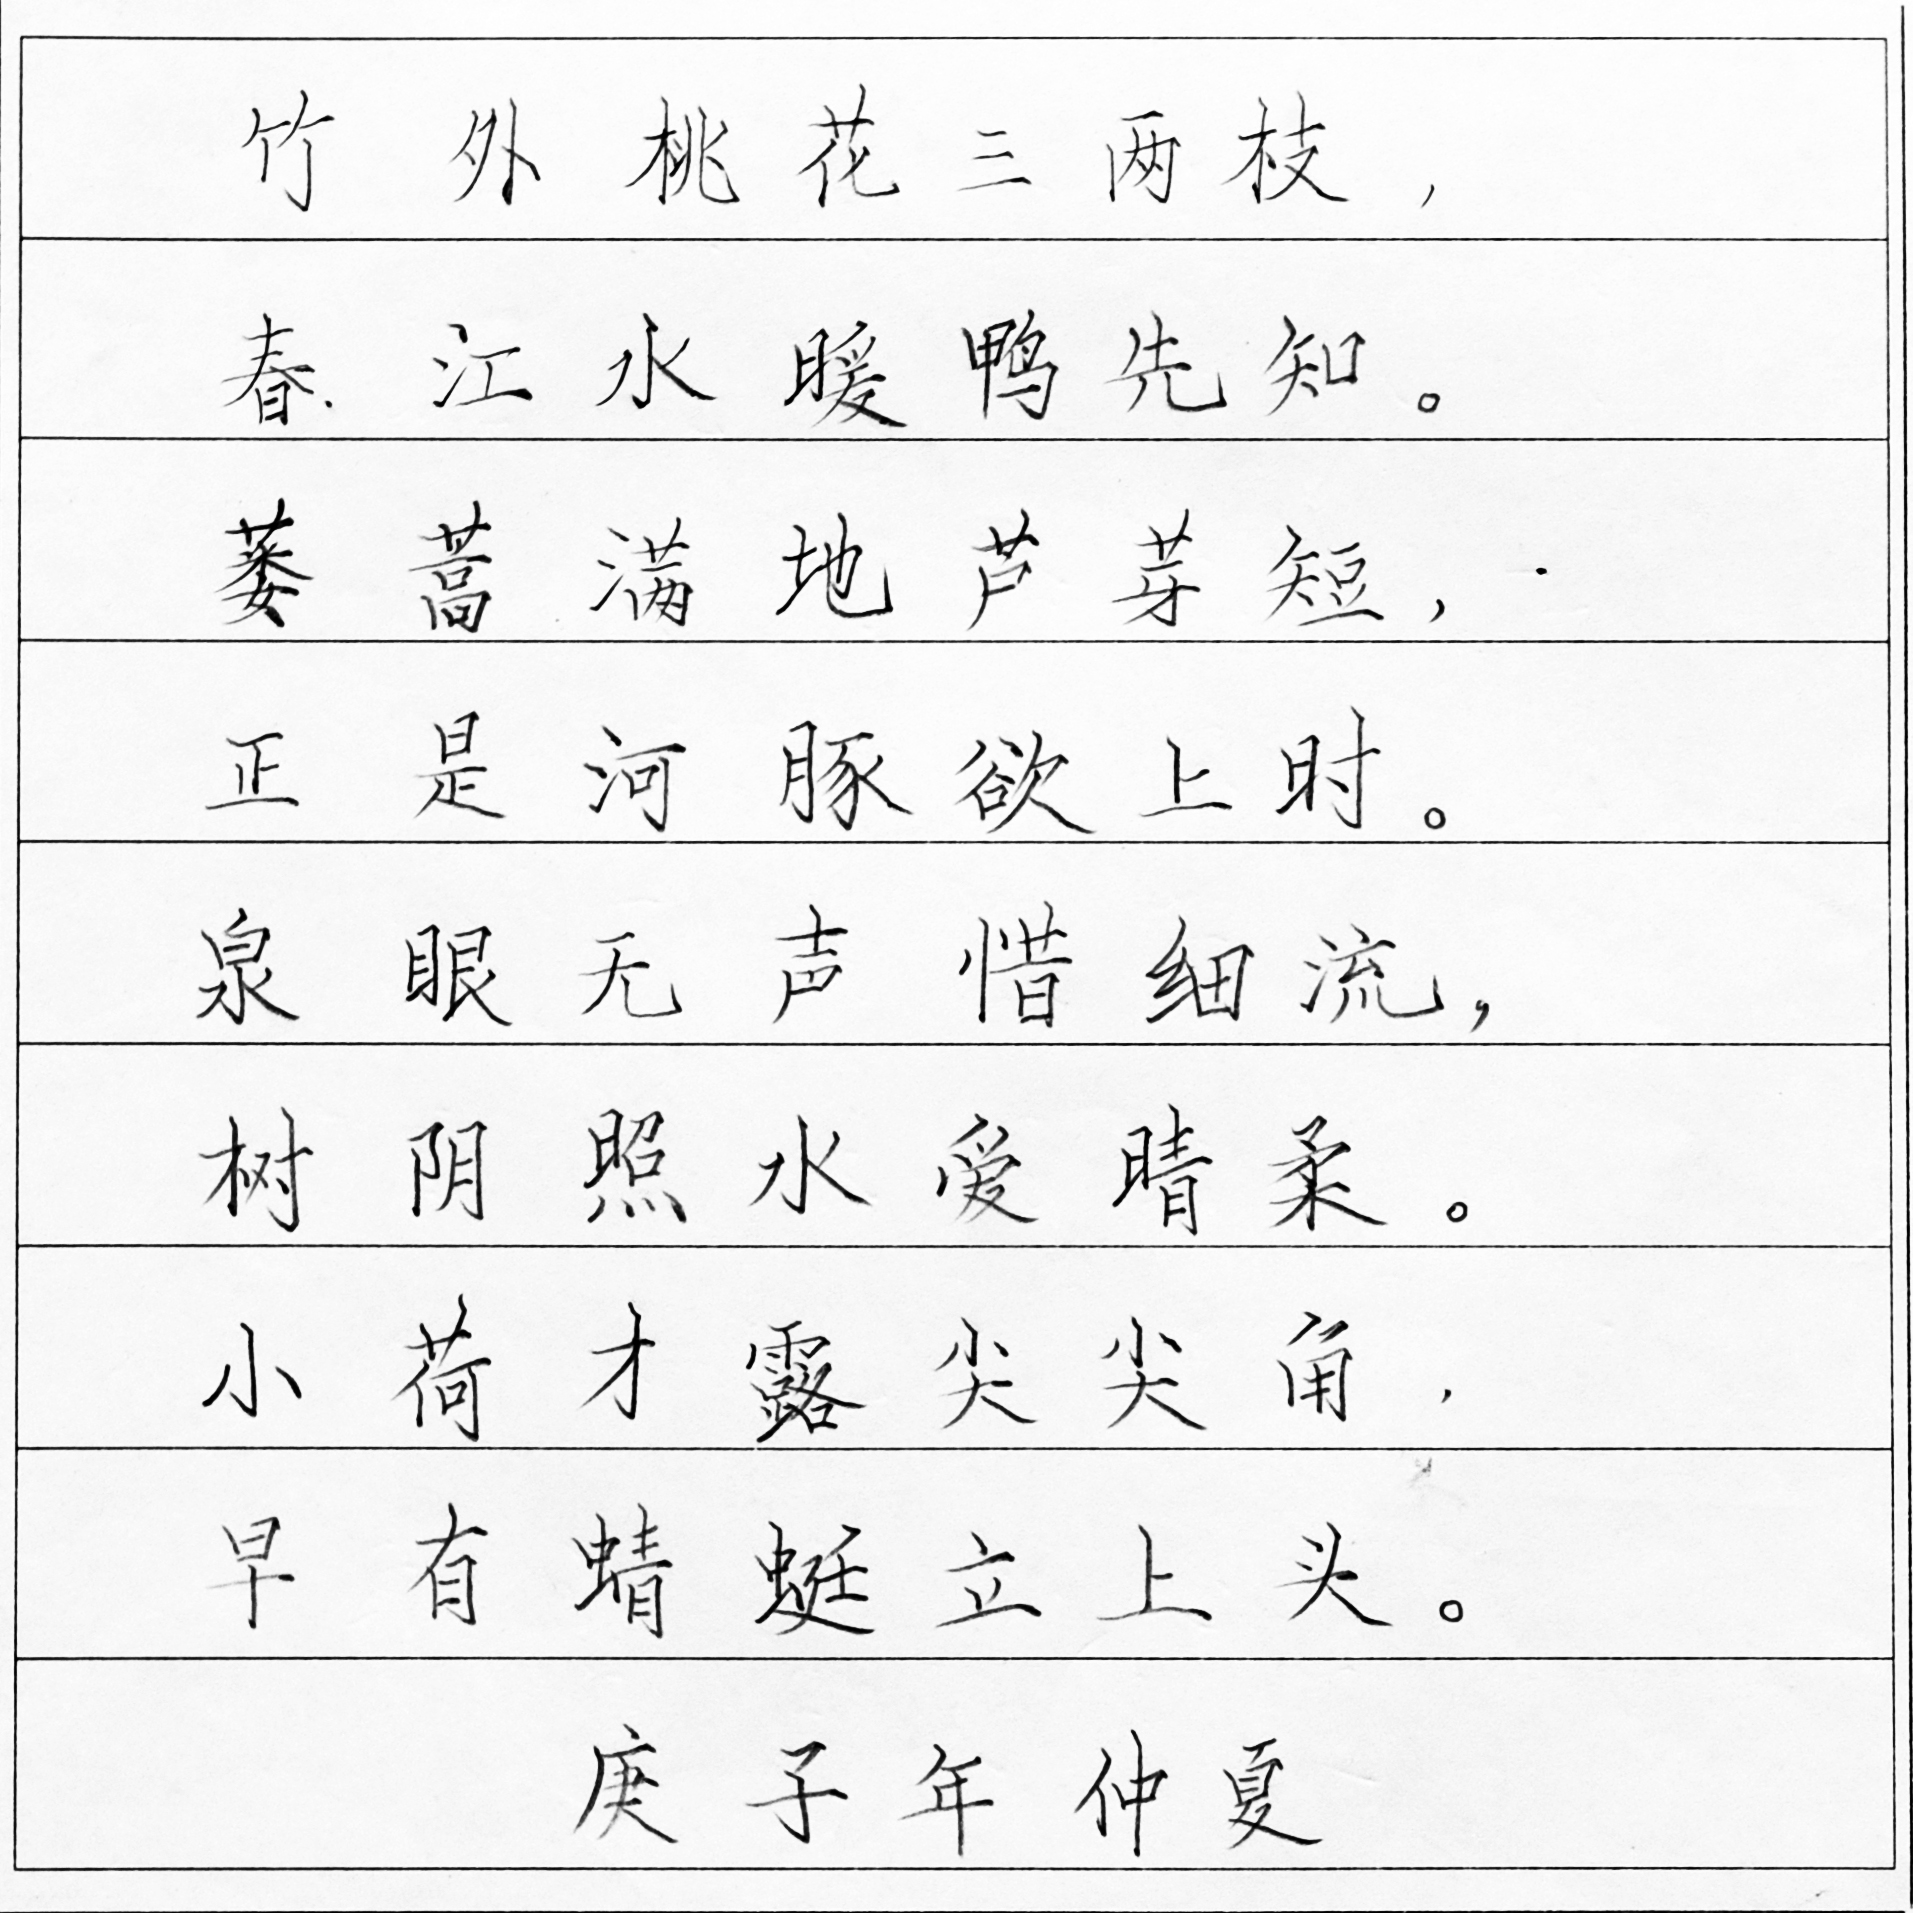 竹外桃花三两枝，
春江水暖鸭先知。
蒌蒿满地芦芽短，
正是河豚欲上时。
泉眼无声惜细流，
树阴照水爱晴柔。
小荷才露尖尖角，
早有蜻蜓立上头。
庚子年仲夏